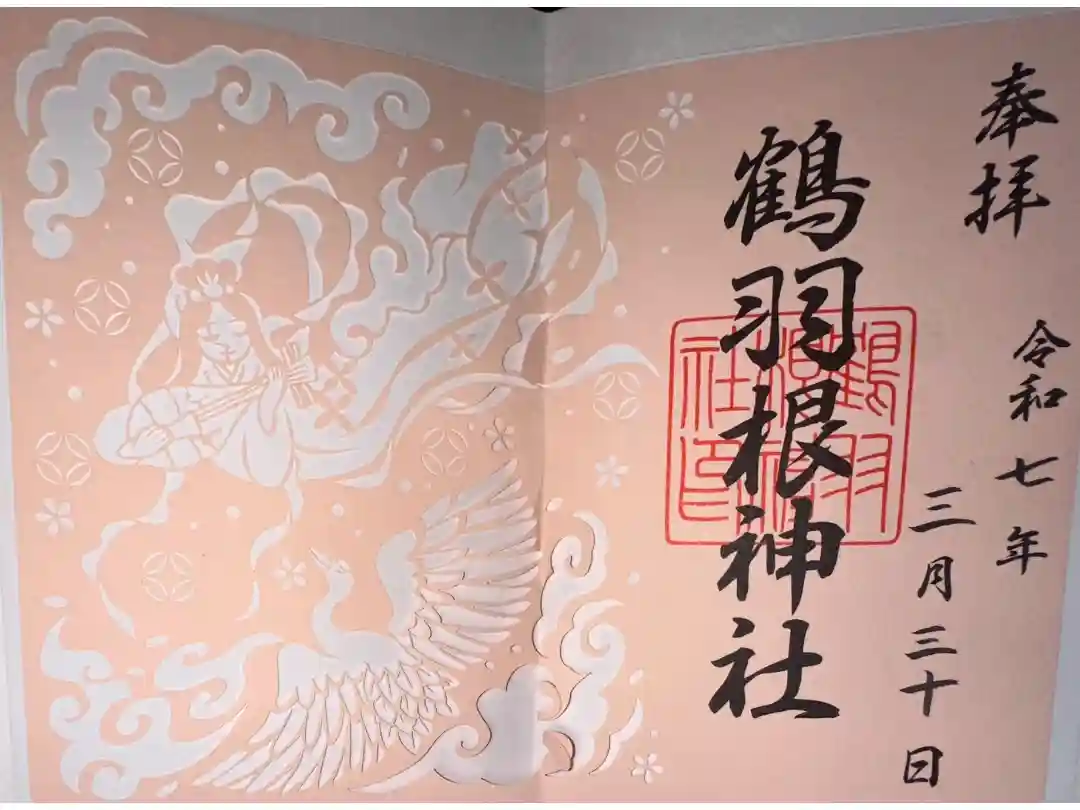 奉拝
令和七年
三月三十日
鶴羽根神社
鶴羽根神社印